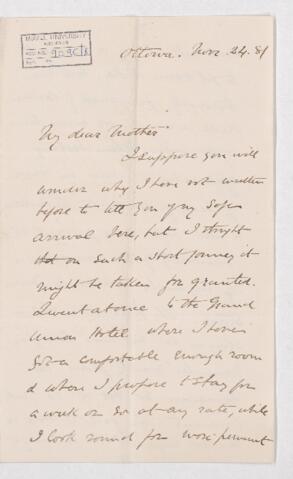 McGILL UNIVERSITY
ARCHIVES
ACC. NO.
REF.
Ottawa. Nov. 24. 81
My dear Mother
I suppose you will
wonder why I have not written
before to tell you of my safe
arrival here, but I thought
that on such a short journey it
might be taken for granted.
I went at once to the Grand
Union Hotel where I have
got a comfortable enough room
& where I propose to stay for
a week or so at any rate, while
I look round for more permanent